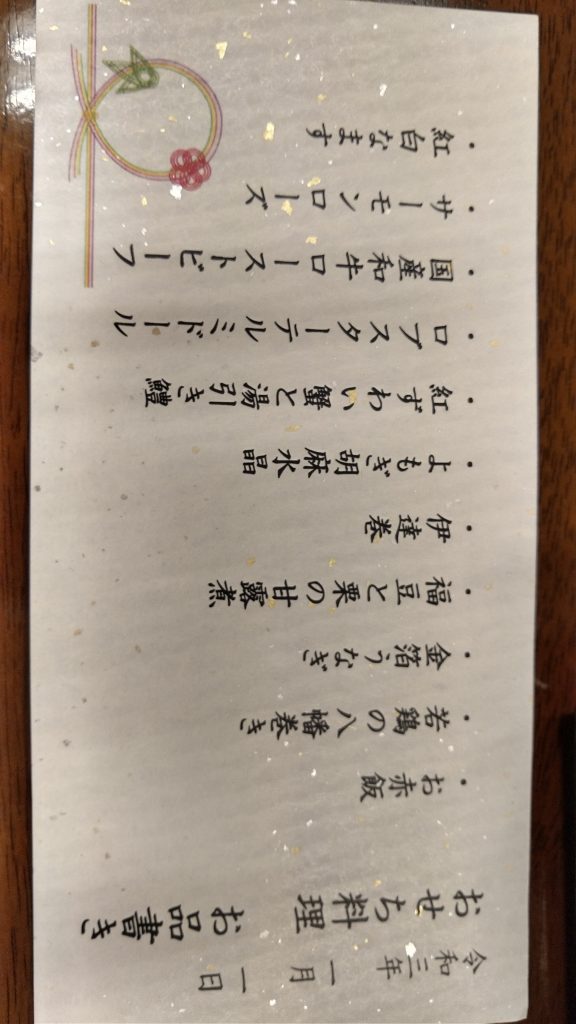 令和三年 一月 一日
おせち料理 お品書き
・お赤飯
・若鶏の八幡巻き
・金箔うなぎ
・福豆と栗の甘露煮
・伊達巻
・よもぎ胡麻水晶
・紅ずわい蟹と湯引き鱧
・ロブスターテルミドール
・国産和牛ローストビーフ
・サーモンローズ
・紅白なます